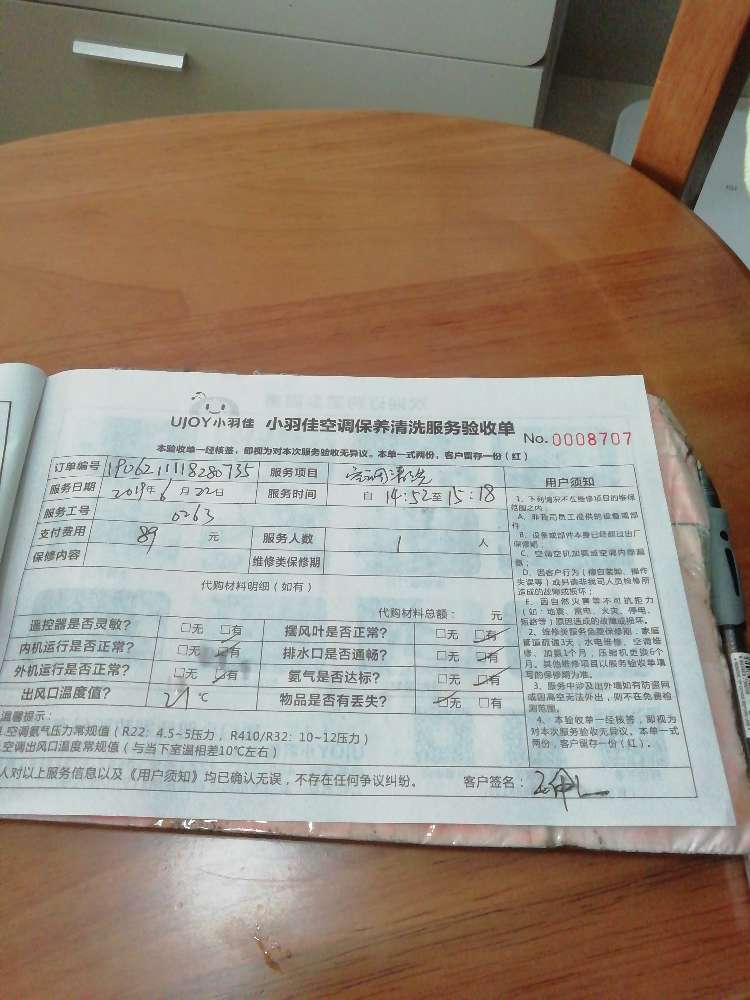 UJOY小羽佳 小羽佳空调保养清洗服务验收单 No.0008707
本验收单一经核签，即视为对本次服务验收无异议。本单一式两份，客户留存一份（红）
订单编号 1906211118280735 服务项目 空调清洗
服务日期 2019年6月22日 服务时间 自14:52至15:18
服务工号 0263
支付费用 89 元 服务人数 1 人
保修内容 维修类保修期
代购材料明细（如有）
代购材料总额： 元
遥控器是否灵敏？ □无 □有 摆风叶是否正常？ □无 □有
内机运行是否正常？ □无 □有 排水口是否通畅？ □无 □有
外机运行是否正常？ □无 □有 氨气是否达标？ □无 □有
出风口温度值？ 21 ℃ 物品是否有丢失？ □无 □有
温馨提示：
.空调氨气压力常规值（R22：4.5~5压力，R410/R32：10~12压力）
.空调出风口温度常规值（与当下室温相差10℃左右）
人对以上服务信息以及《用户须知》均已确认无误，不存在任何争议纠纷。 客户签名：
用户须知
1、下列情况不在维修项目的维保
范围之内
A、非我司员工提供的设备或部
件
B、设备或部件本身已经超过出厂
保修期
C、空调空机加氨或空调内漏漏
氨；
D、因客户行为（擅自装卸、操作
失误等）或另请非我司人员检修所
造成的故障或损坏；
E、因自然灾害等不可抗拒力
（如：地震、雷电、火灾、停电、
短路等）原因造成的故障或损坏。
2、维修类服务品质保修期：家庭
管道疏通3天，水电维修、空调维
修、加氨1个月，压缩机更换6个
月。其他维修项目以服务验收单填
写的保修期为准。
3、服务中涉及出外墙如有防盗网
或因高空无法外出，则不在安检测
范围。
4、本验收单一经核签，即视为
对本次服务验收无异议。本单一式
两份，客户留存一份（红）。